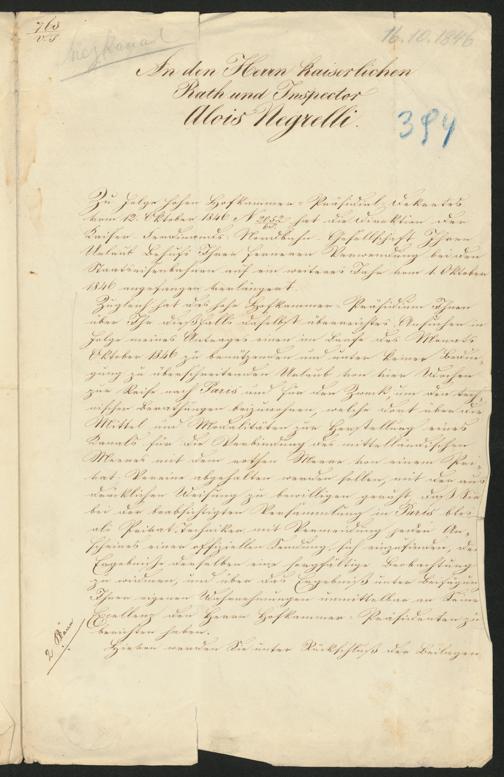 763
16.10.1846
Nezkanal
An den Herrn Kaiserlichen
Rath und Inspector
Alois Negrelli.
394
Zu Folge hohen Hofkammer-Präsidial-Dekretes
vom 12. Oktober 1846 N hat die Direktion der
Kaiser Ferdinands-Nordbahn-Gesellschaft Ihren
Urlaub behufs Ihrer ferneren Verwendung bei den
Staatseisenbahnen auf ein weiteres Jahr vom 1. Oktober
1846 angefangen verlängert.
Zugleich hat das hohe Hofkammer-Präsidium Ihnen
über Ihr dießfalls daselbst überreichtes Ansuchen in
Folge meines Antrages einen im Laufe des Monats
Oktober 1846 zu benützenden und unter keiner Bedin-
gung zu überschreitenden Urlaub von vier Wochen
zur Reise nach Paris und für den Zweck, um den tech-
nischen Berathungen beizuwohnen, welche dort über die
Mittel und Modalitäten zur Herstellung eines
Kanals für die Verbindung des mittelländischen
Meeres mit dem rothen Meere von einem Pri-
vat-Vereine abgehalten werden sollen, mit der aus-
drücklichen Weisung zu bewilligen geruht, daß Sie
bei der beabsichtigten Versammlung in Paris blos
als Privat-Techniker mit Vermeidung jeden An-
scheines einer offiziellen Sendung, sich einzufinden, den
Ergebnissen derselben eine sorgfältige Beobachtung
zu widmen, und über das Ergebniß unter Beifügung
Ihrer eigenen Wahrnehmungen unmittelbar an Seine
Excellenz den Herrn Hofkammer-Präsidenten zu
berichten haben.
Hievon werden Sie unter Rückschluß der Beilagen
2